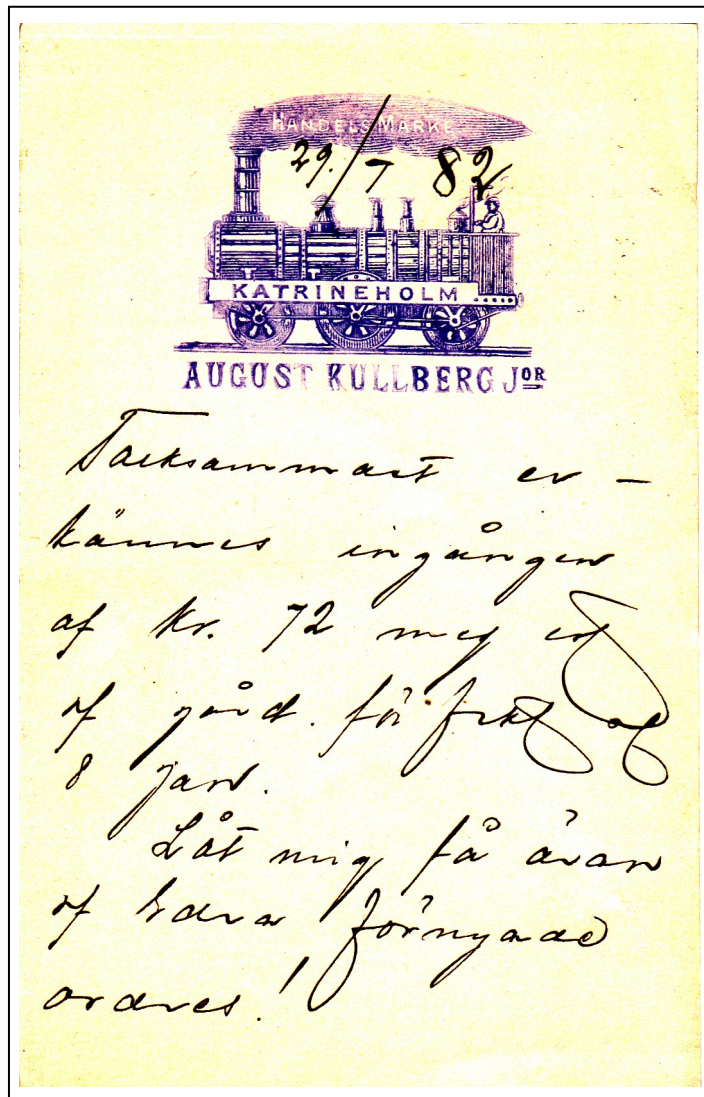 HANDELS MÄRKE
29/7 82
KATRINEHOLM
AUGUST KULLBERG JOR
Tacksammast er-
kännes ingången
af kr. 72 meg
af gård. för
8 jan.
Låt mig få äran
af Edra förnyade
ordres!